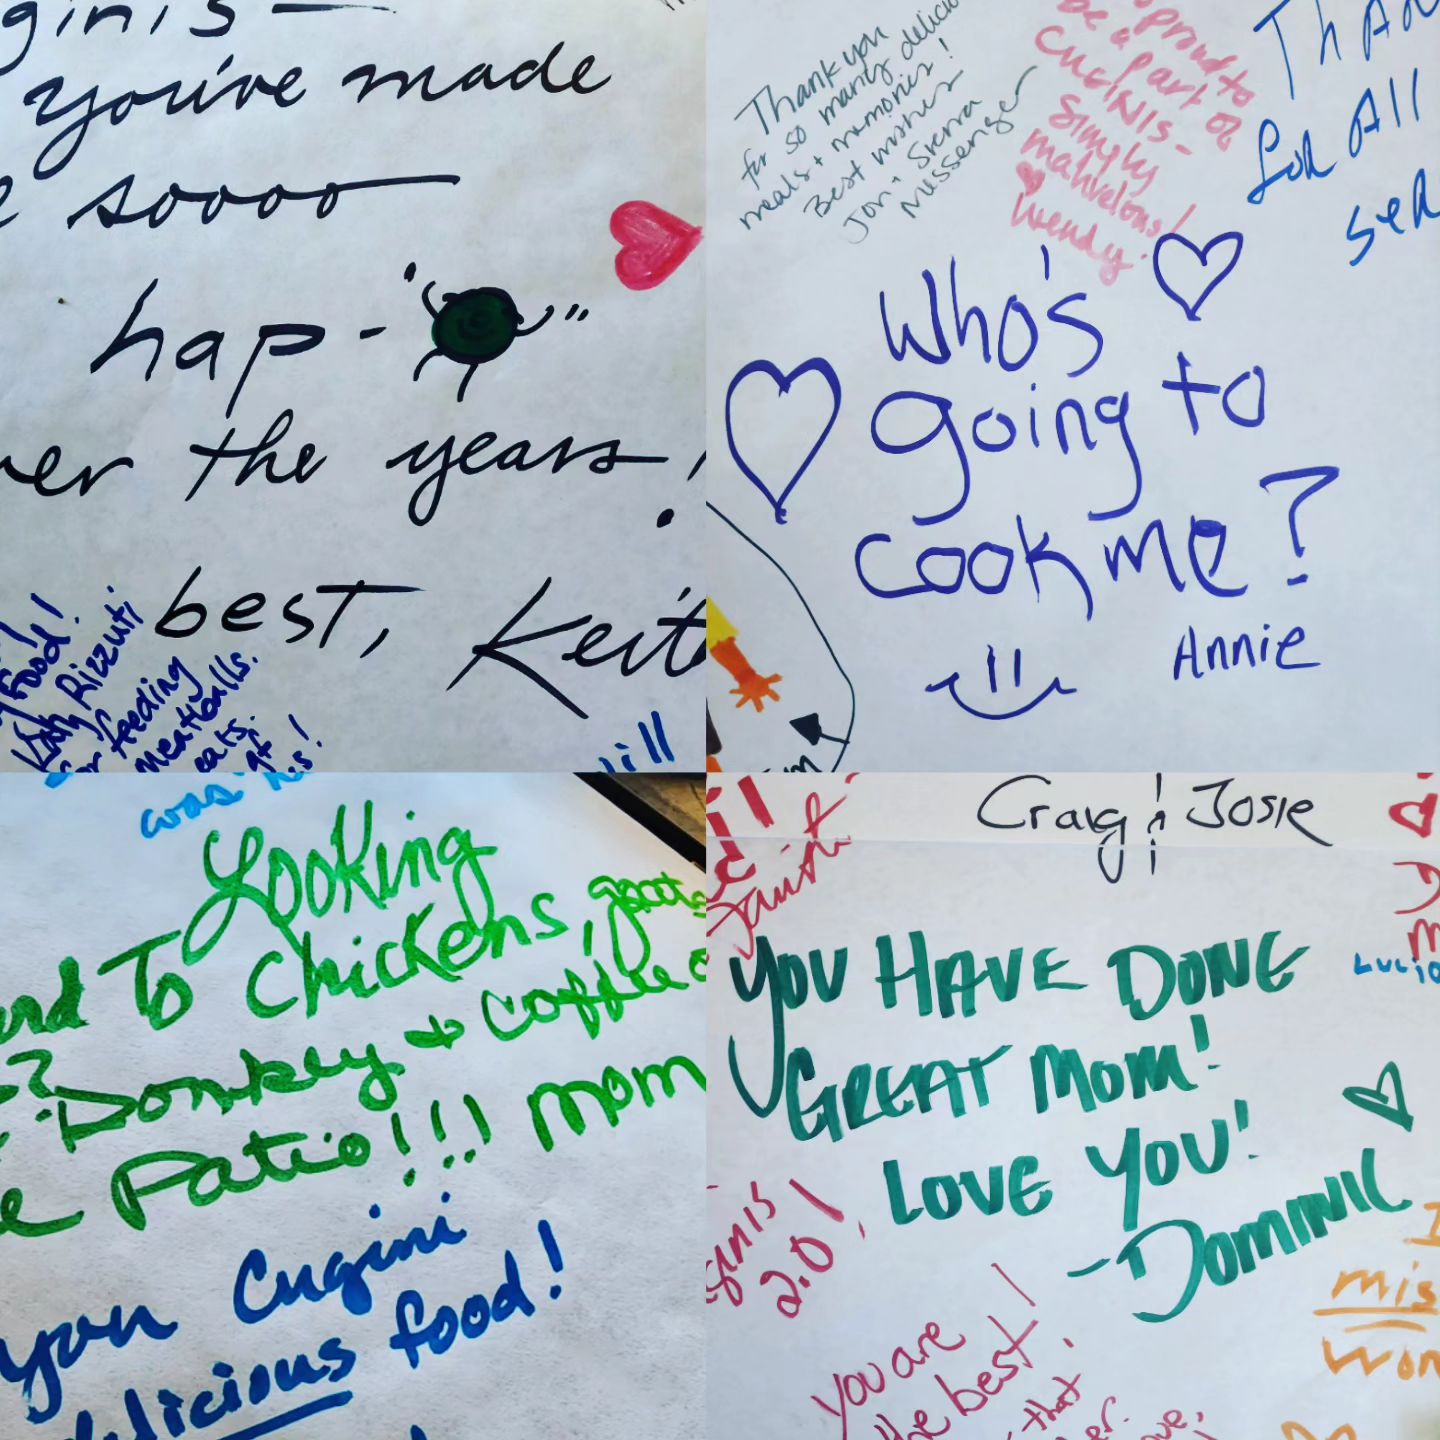 ginis —
you've made
e soooo
hap - " "
er the years!
best, Keit
Food!
Rizzuti
feeding
meatballs.
eats.
ill
Thank you
for so many delicio
meals + memories!
Best wishes
Jon + Sierra
Messenger
proud to
be a part of
Cucinis -
simply
mahvelous!
Wendy.
Than
for All
sea
Who's
going to
cook me?
Annie
was
Looking
To Chickens, goats
? Donkey & coffee o
e Patio!!! Mom
you Cugini
delicious food!
Craig & Josie
You have done
great mom!
Love you!
- Dominic
ginis
2.0!
Lucio
I
mis
won
you are
the best!
that